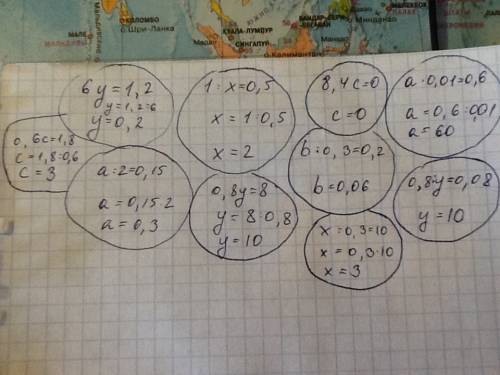 МАЛЕ
КОЛОМБО
Шри-Ланка
КУАЛА-ЛУМПУР
СИНГАПУР
БАНДАР-СЕРИ-
БЕГАВАН
о. Калимантан
МЕЛЕКЕОК
6y = 1,2
y = 1,2 : 6
y = 0,2
1 : x = 0,5
x = 1 : 0,5
x = 2
8,4c = 0
c = 0
a : 0,01 = 0,6
a = 0,6 : 0,01
a = 60
0,6c = 1,8
c = 1,8 : 0,6
c = 3
a : 2 = 0,15
a = 0,15 · 2
a = 0,3
0,8y = 8
y = 8 : 0,8
y = 10
b : 0,3 = 0,2
b = 0,06
x = 0,3 = 10
x = 0,3 · 10
x = 3
0,8 : y = 0,08
y = 10